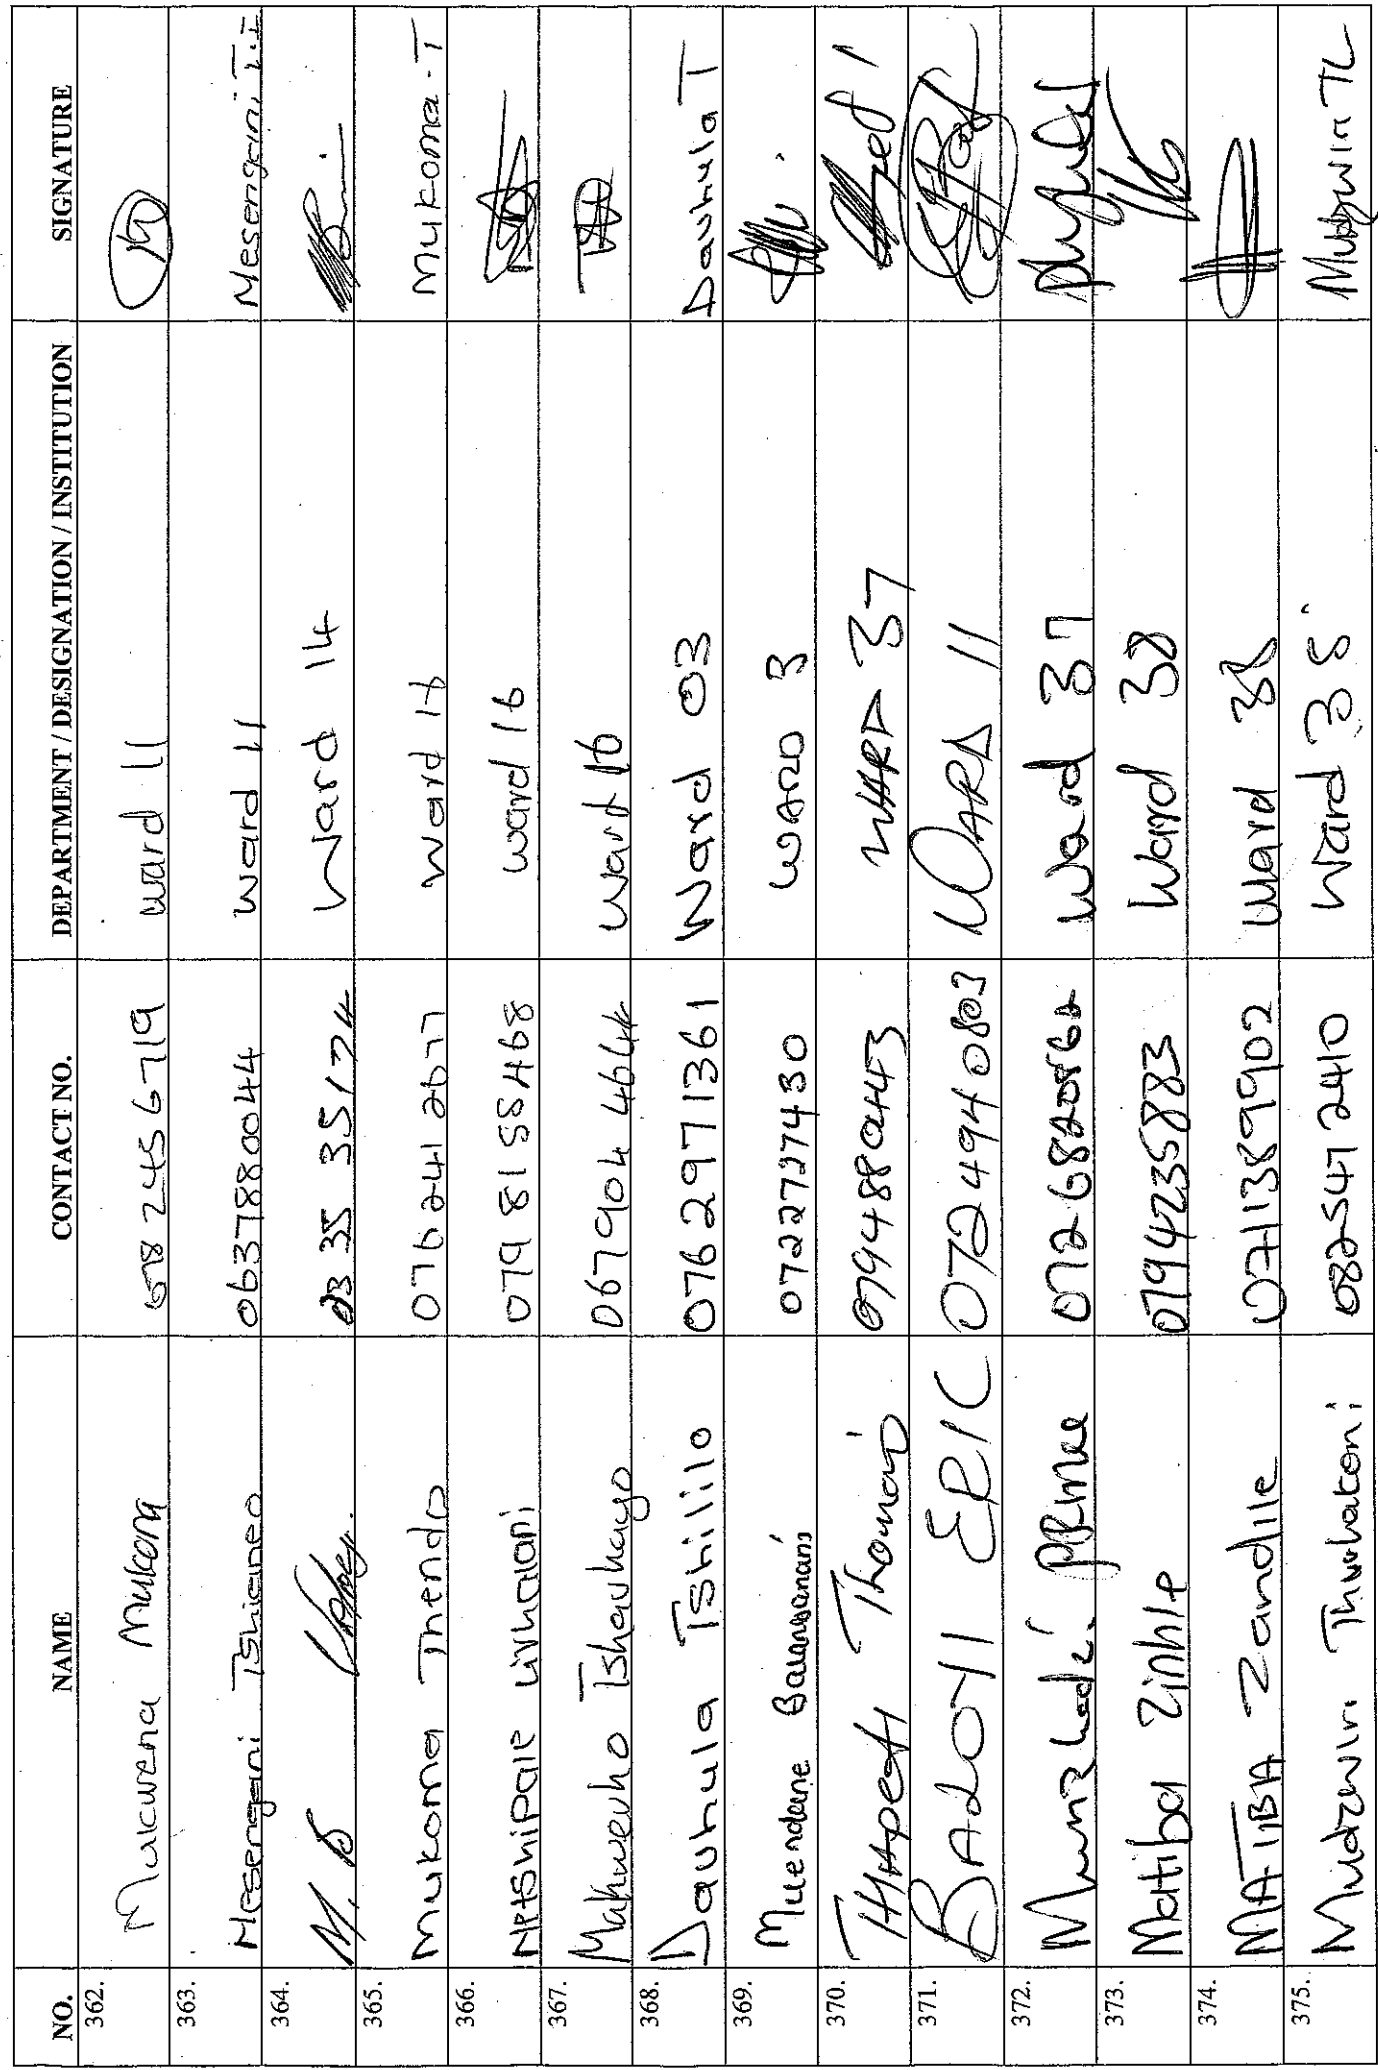 NO. NAME CONTACT NO. DEPARTMENT / DESIGNATION / INSTITUTION SIGNATURE
362. Mukwena Mukona 078 245 6719 ward 11
363. Mesengani Tshianeo 0637880044 ward 11 Mesengani T.I
364. M. D 35 3517 Ward 14
365. Mukoma Thendo 076 241 2677 Ward 16 Mukoma. T
366. Netshipale Livhuani 079 8158468 Ward 16
367. Makwevho Tshavhayo 067904 4644 Ward 16
368. Dauhula Tshililo 0762971361 Ward 03 Dauhula T
369. Muendane 0722727430 WARD 3
370. Thomani WARD 37
371. BALOYI ERIC 0724940803 WARD 11
372. 072682086 Ward 37
373. Matiba Zinhle 0794235883 Ward 38
374. MATIBA Zandile 0711389902 Ward 38
375. Mudzwiri 082547 2410 Ward 38